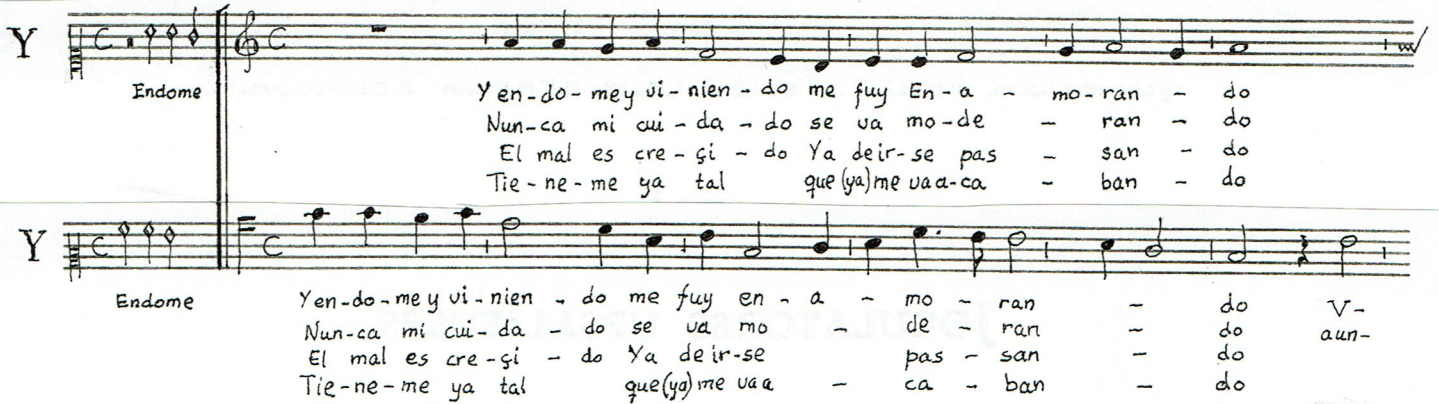 Y
Endome Y en-do-mey vi-nien-do me fuy En-a - mo-ran - do
Nun-ca mi cui-da-do se va mo-de - ran - do
El mal es cre-çi-do Ya deir-se pas - san - do
Tie-ne-me ya tal que(ya)me vaa-ca - ban - do
Y
Endome Yen-do-me y vi-nien-do me fuy en-a-mo-ran - do V-
Nun-ca mi cui-da-do se va mo - de-ran - do aun-
El mal es cre-çi-do Ya de ir-se pas-san - do
Tie-ne-me ya tal que(ya)me vaa - ca-ban - do